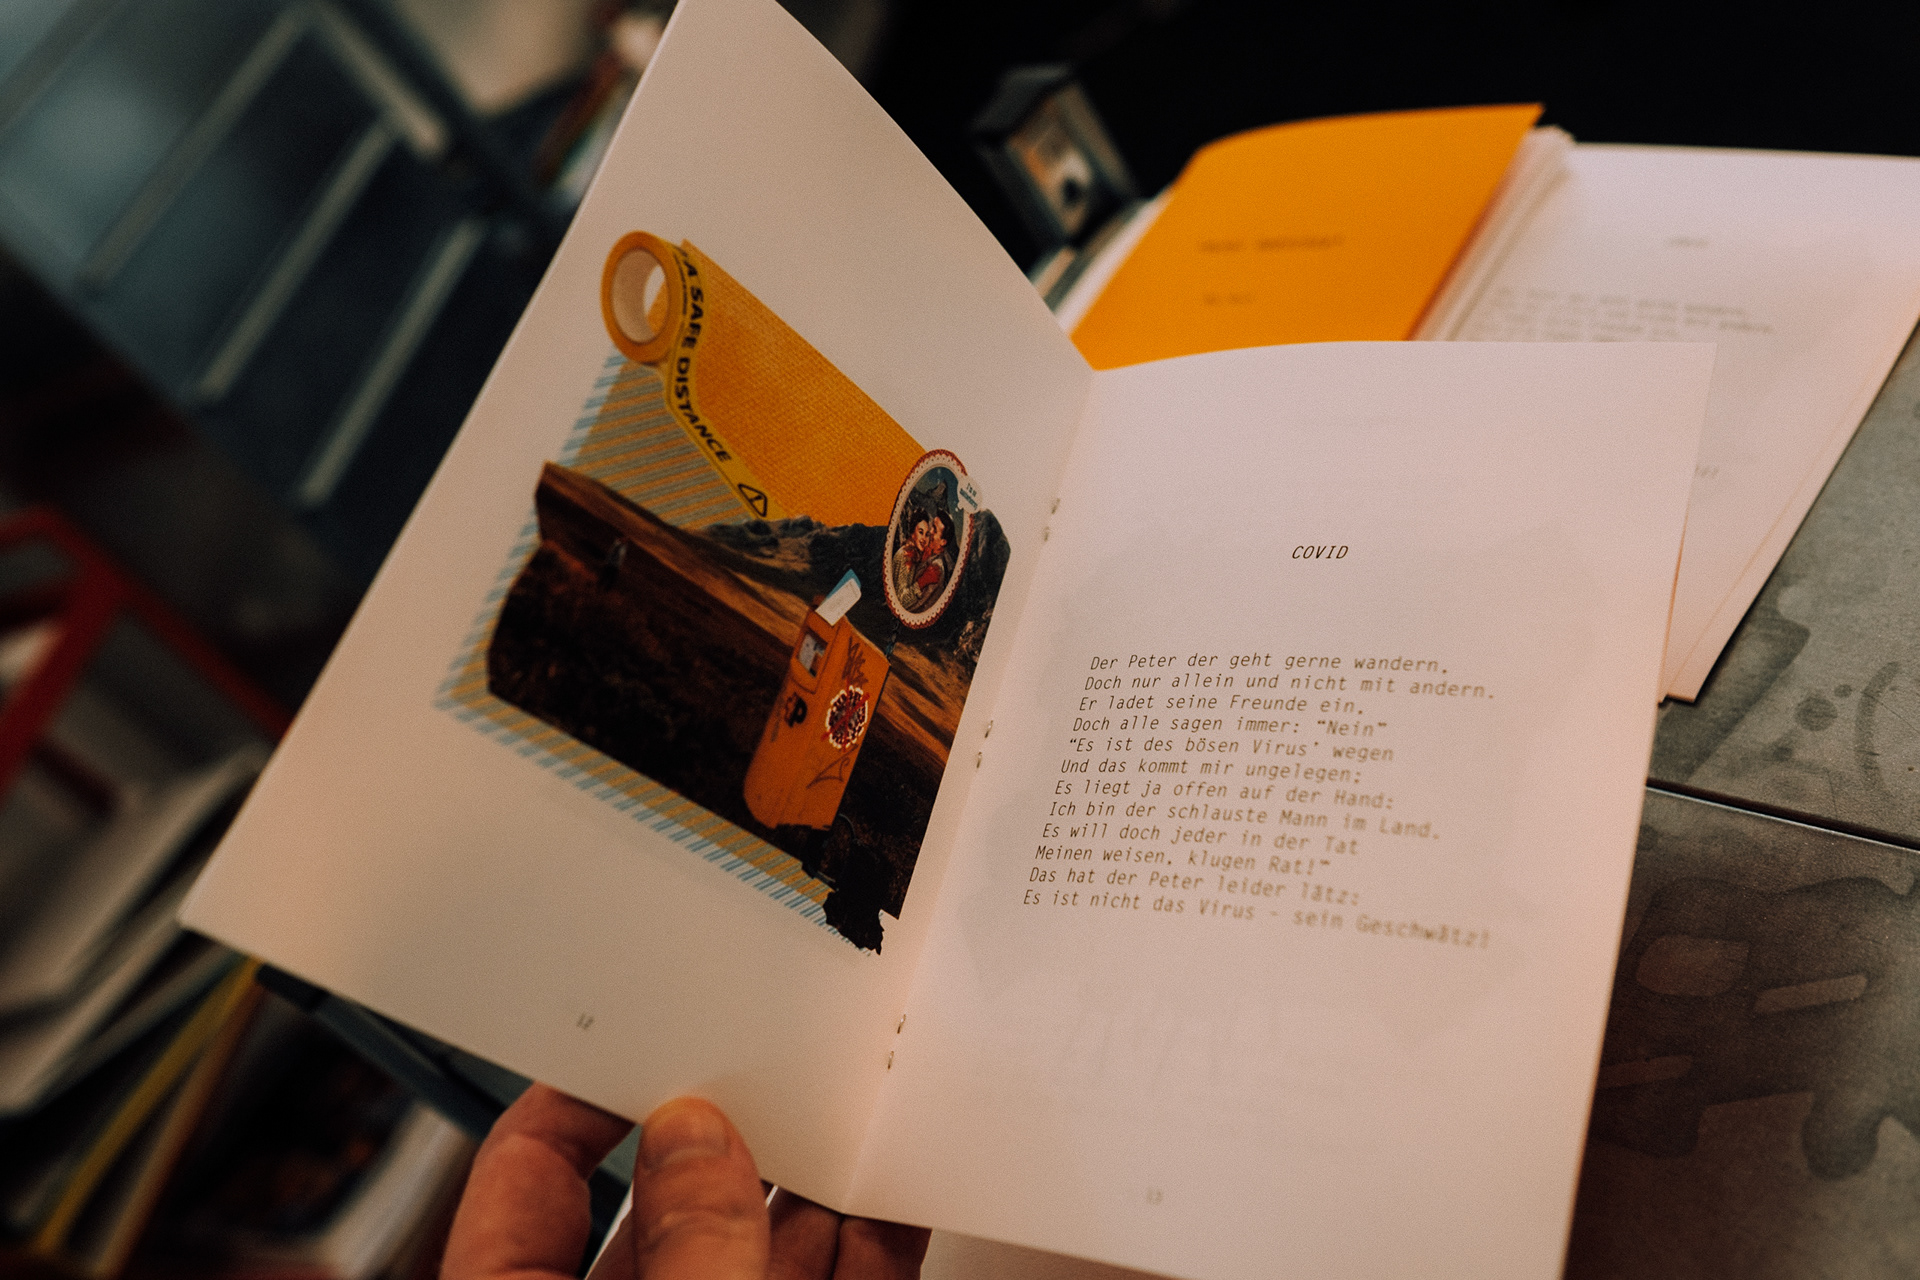 A SAFE DISTANCE
P
12
COVID
Der Peter der geht gerne wandern.
Doch nur allein und nicht mit andern.
Er ladet seine Freunde ein.
Doch alle sagen immer: “Nein”
“Es ist des bösen Virus’ wegen
Und das kommt mir ungelegen;
Es liegt ja offen auf der Hand:
Ich bin der schlauste Mann im Land.
Es will doch jeder in der Tat
Meinen weisen, klugen Rat!”
Das hat der Peter leider lätz:
Es ist nicht das Virus - sein Geschwätz!
13